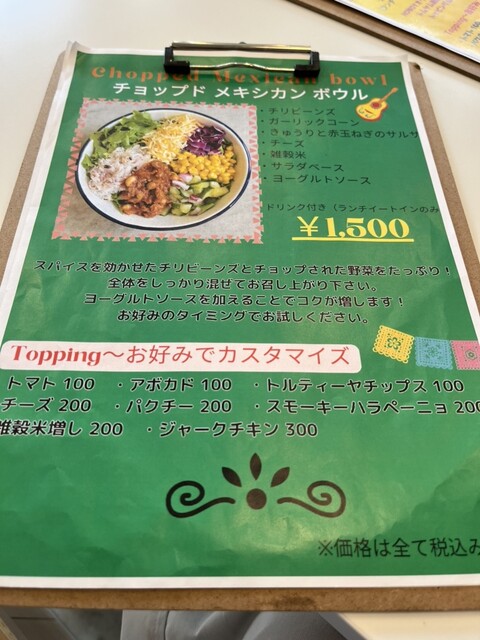 Chopped Mexican bowl
チョップド メキシカン ボウル
・チリビーンズ
・ガーリックコーン
・きゅうりと赤玉ねぎのサルサ
・チーズ
・雑穀米
・サラダベース
・ヨーグルトソース
ドリンク付き（ランチイートインのみ
￥1,500
スパイスを効かせたチリビーンズとチョップされた野菜をたっぷり！
全体をしっかり混ぜてお召し上がり下さい。
ヨーグルトソースを加えることでコクが増します！
お好みのタイミングでお試しください。
Topping～お好みでカスタマイズ
トマト 100 ・アボカド 100 ・トルティーヤチップス 100
チーズ 200 ・パクチー 200 ・スモーキーハラペーニョ 200
雑穀米増し 200 ・ジャークチキン 300
※価格は全て税込み